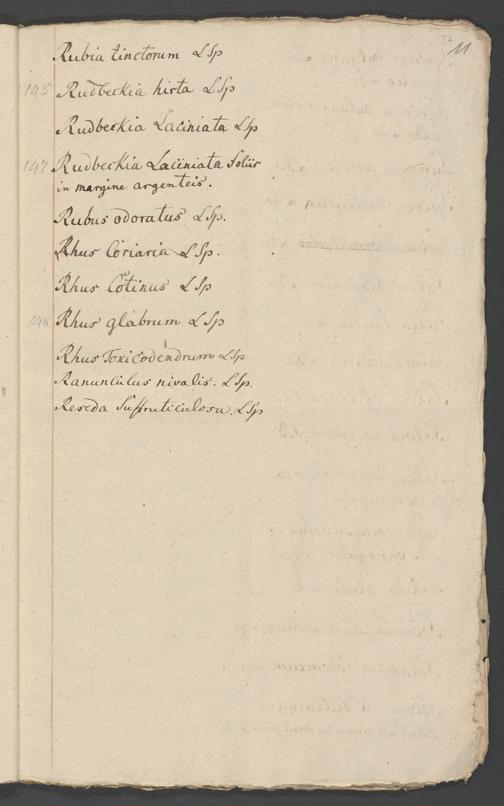 11
Rubia tinctorum L Sp
145 Rudbeckia hirta L Sp
Rudbeckia Laciniata L Sp
147 Rudbeckia Laciniata Foliis
in margine argenteis.
Rubus odoratus L Sp.
Rhus Coriaria L Sp.
Rhus Cotinus L Sp
148 Rhus glabrum L Sp
Rhus Toxicodendrum L Sp
Ranunculus nivalis. L Sp.
Reseda Suffruticulosa. L Sp